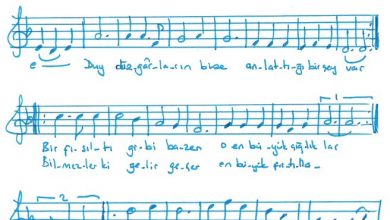 e Duy rüz-gâr-la-rın bize an-lat-tı-ğı bir şey var
1
Bir fı-sıl-tı gi-bi ba-zen O en bü-yük çığlık lar
Bil-mez-ler ki ge-lir ge-çer en bü-yük
2